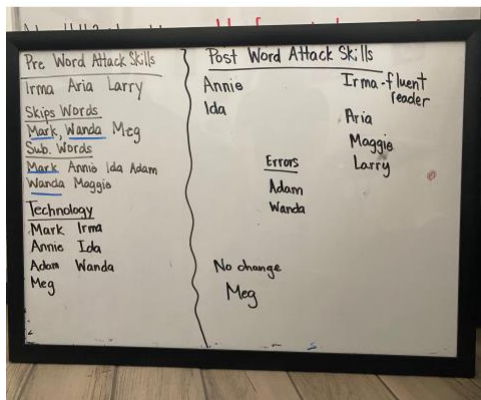 Pre Word Attack Skills
Irma Aria Larry
Skips Words
Mark, Wanda Meg
Sub. Words
Mark Annie Ida Adam
Wanda Maggie
Technology
Mark Irma
Annie Ida
Adam Wanda
Meg
Post Word Attack Skills
Annie
Ida
Irma-fluent
reader
Aria
Maggie
Larry
Errors
Adam
Wanda
No change
Meg